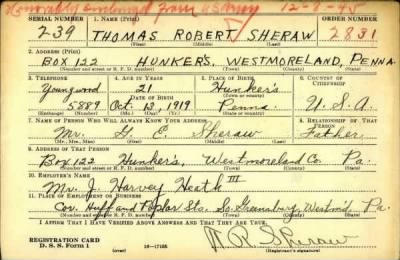 Honorably discharged from US Army 12-8-45
SERIAL NUMBER 1. NAME (Print) ORDER NUMBER
239 THOMAS ROBERT SHERAW 2831
(First) (Middle) (Last)
2. ADDRESS (Print)
BOX 122 HUNKERS, WESTMORELAND, PENNA.
(Number and street or R. F. D. number) (Town) (County) (State)
3. TELEPHONE 4. AGE IN YEARS 5. PLACE OF BIRTH 6. COUNTRY OF CITIZENSHIP
Youngwood 21 Hunkers
DATE OF BIRTH (Town or county)
5889 Oct. 13, 1919 Penna. U.S.A.
(Exchange) (Number) (Mo.) (Day) (Yr.) (State or country)
7. NAME OF PERSON WHO WILL ALWAYS KNOW YOUR ADDRESS 8. RELATIONSHIP OF THAT PERSON
Mr. G. E. Sheraw Father
(Mr., Mrs., Miss) (First) (Middle) (Last)
9. ADDRESS OF THAT PERSON
Box 122 Hunkers, Westmoreland Co. Pa.
(Number and street or R. F. D. number) (Town) (County) (State)
10. EMPLOYER'S NAME
Mr. J. Harvey Heath III
11. PLACE OF EMPLOYMENT OR BUSINESS
Cor. Huff and Poplar Sts. So. Greensburg Westm'd Pa.
(Number and street or R. F. D. number) (Town) (County) (State)
I AFFIRM THAT I HAVE VERIFIED ABOVE ANSWERS AND THAT THEY ARE TRUE.
REGISTRATION CARD
D. S. S. Form 1 (over) 16-17105
T. R. Sheraw
(Registrant's signature)